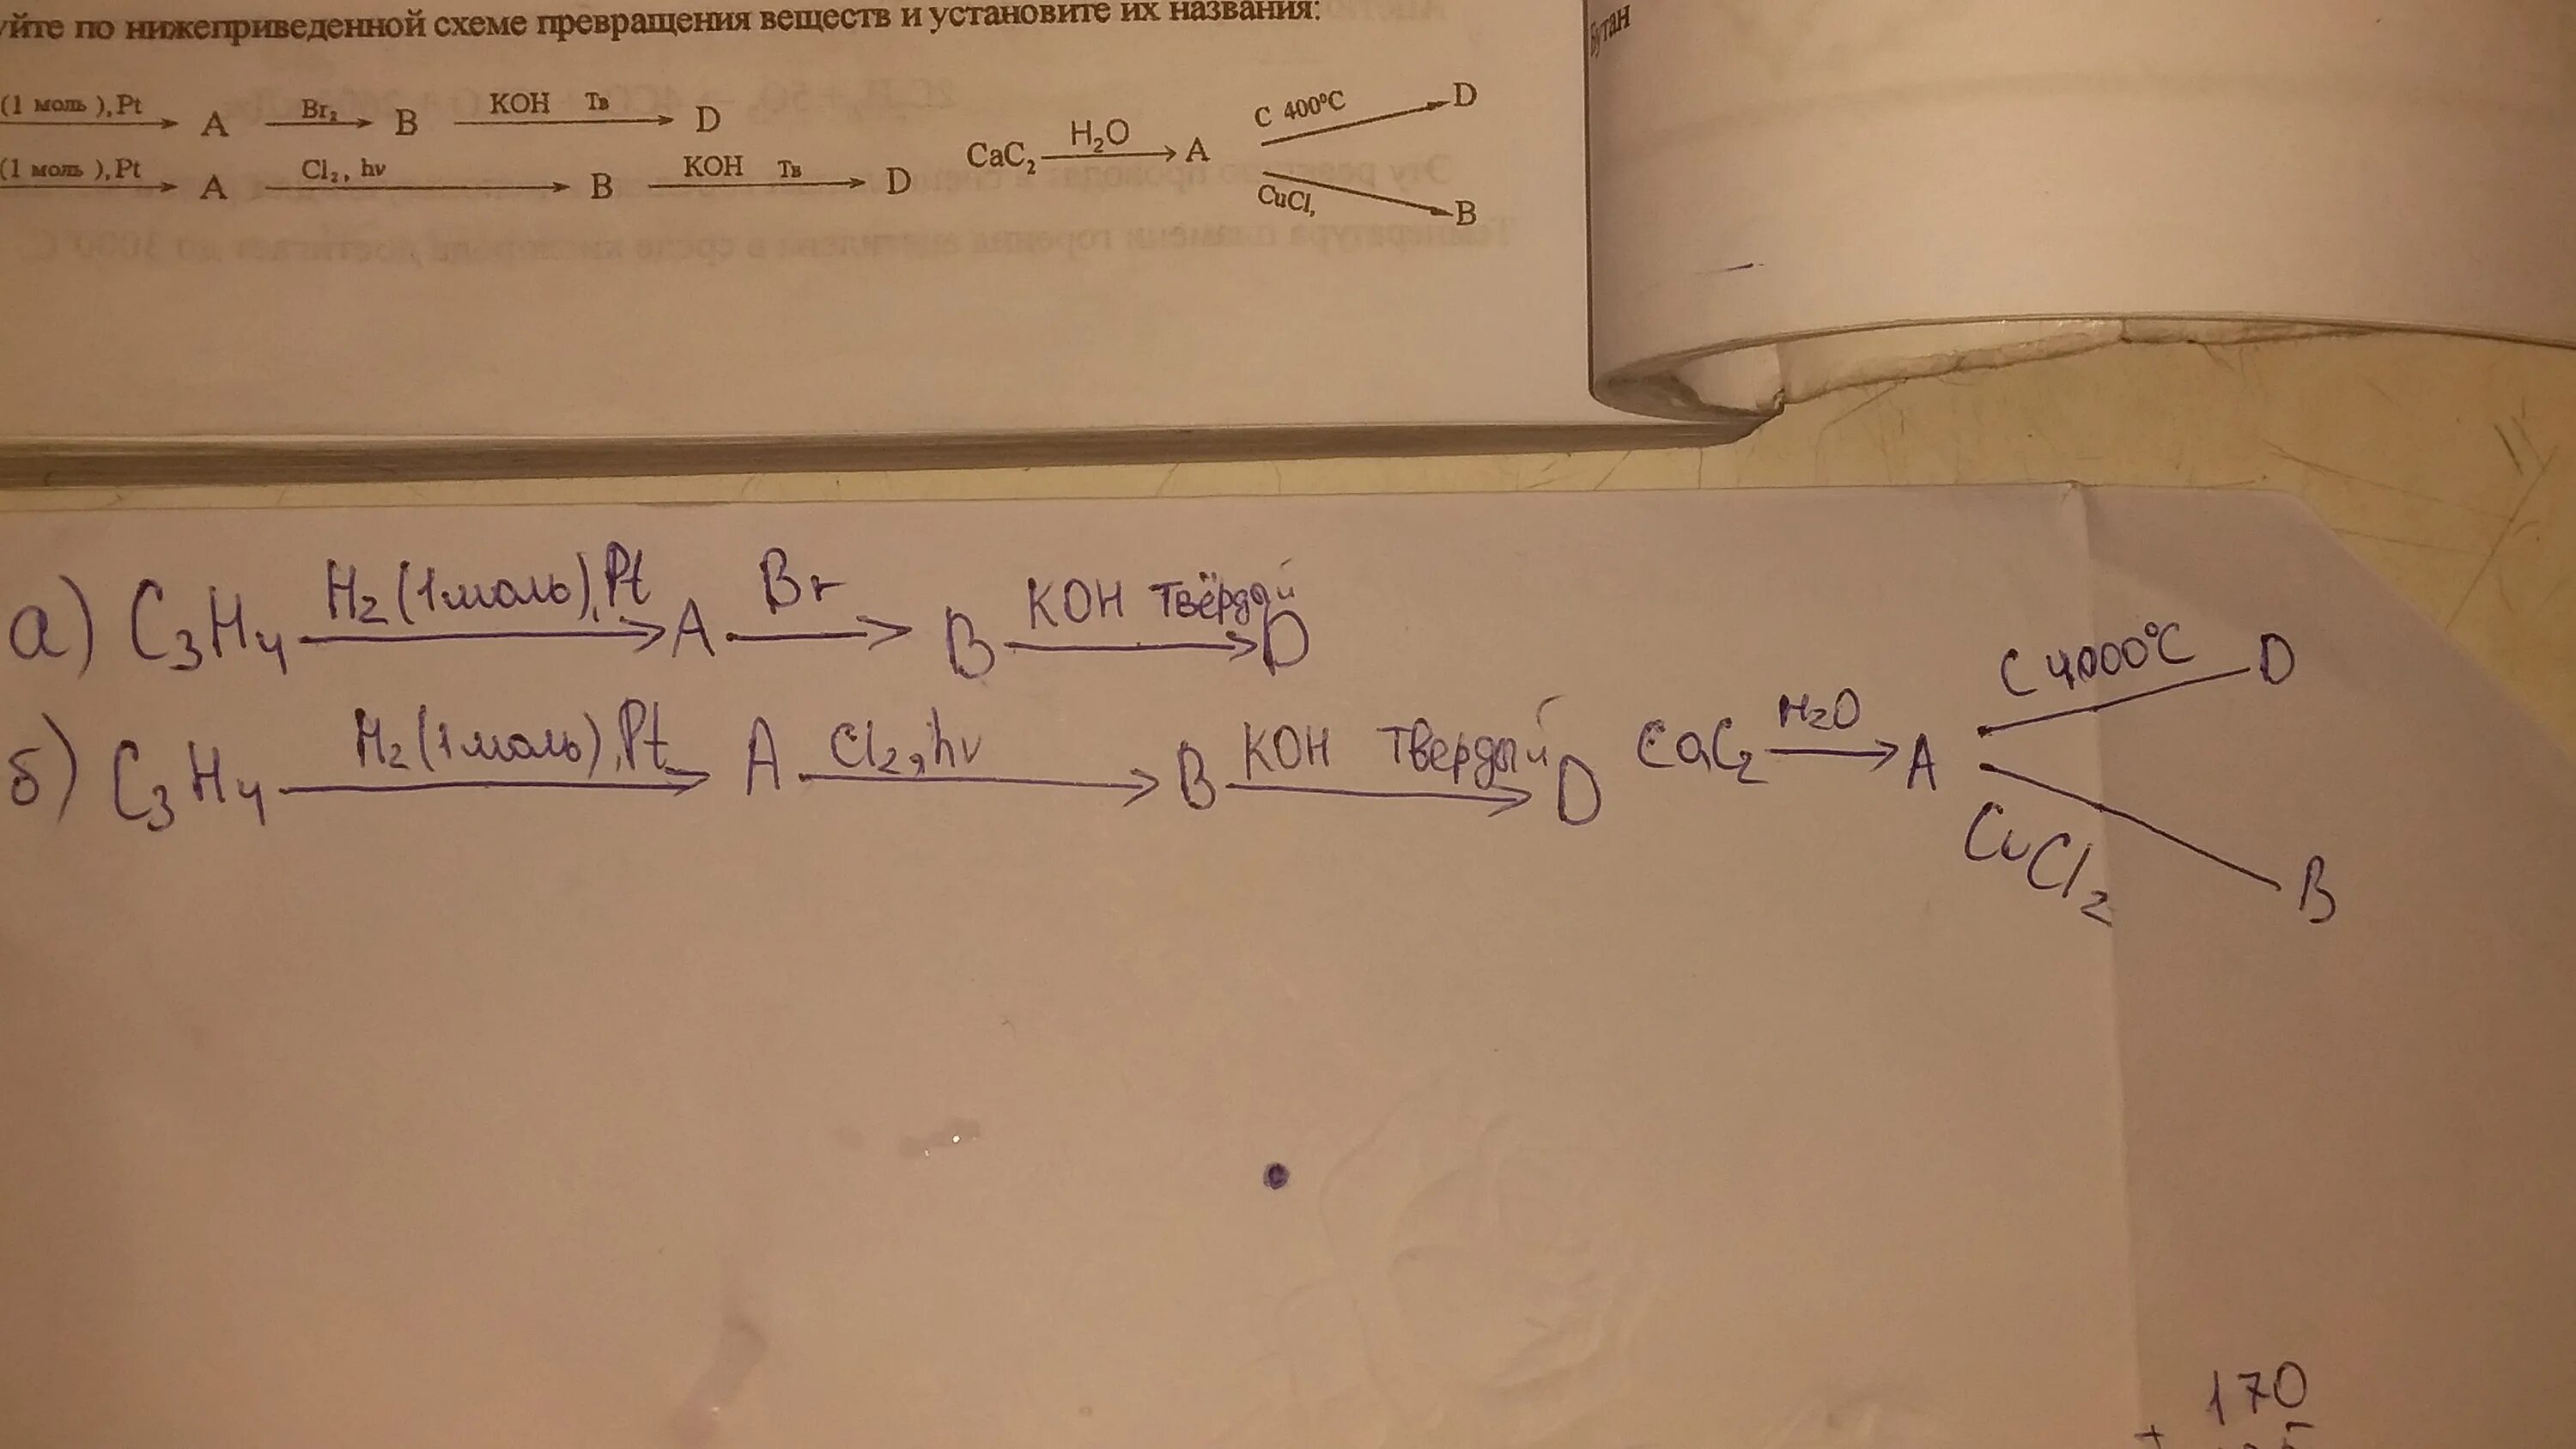 уйте по нижеприведенной схеме превращения веществ и установите их названия:
(1 моль ),Pt A Br₂ B KOH Тв D
(1 моль ),Pt A Cl₂, hν B KOH Тв D
CaC₂ H₂O A C 400°C D
CuCl, B
Бутан
а) C₃H₄ H₂(1моль),Pt A Br B KOH твёрдый D
б) C₃H₄ H₂(1моль),Pt A Cl₂,hν B KOH твердый D CaC₂ H₂O A C 4000°C D
CuCl₂ B
170
+